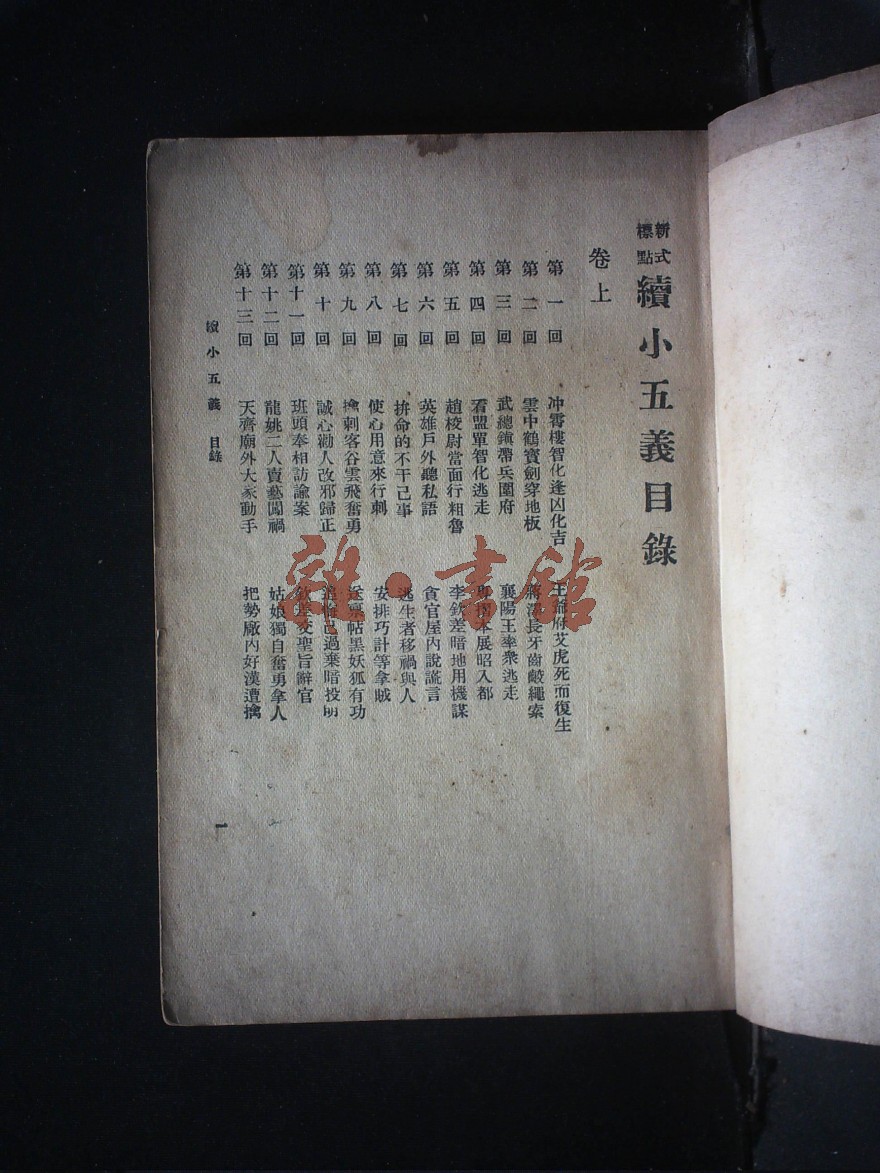 新式標點 續小五義目錄
卷上
第一回 冲霄樓智化逢凶化吉 王爺府艾虎死而復生
第二回 雲中鶴寶劍穿地板 蔣澤長牙齒齩繩索
第三回 武總鎮帶兵圍府 襄陽王率衆逃走
第四回 看盟單智化逃走 摺本展昭入都
第五回 趙校尉當面行粗魯 李欽差暗地用機謀
第六回 英雄戶外聽私語 貪官屋內說謊言
第七回 拚命的不干己事 逃生者移禍與人
第八回 使心用意來行刺 安排巧計等拿賊
第九回 擒刺客谷雲飛奮勇 送稟帖黑妖狐有功
第十回 誠心勸人改邪歸正 追悔己過棄暗投明
第十一回 班頭奉相訪諭案 欽差交聖旨辭官
第十二回 龍姚二人賣藝闖禍 姑娘獨自奮勇拿人
第十三回 天齊廟外大家動手 把勢廠內好漢遭擒
續小五義 目錄
一
説·書館